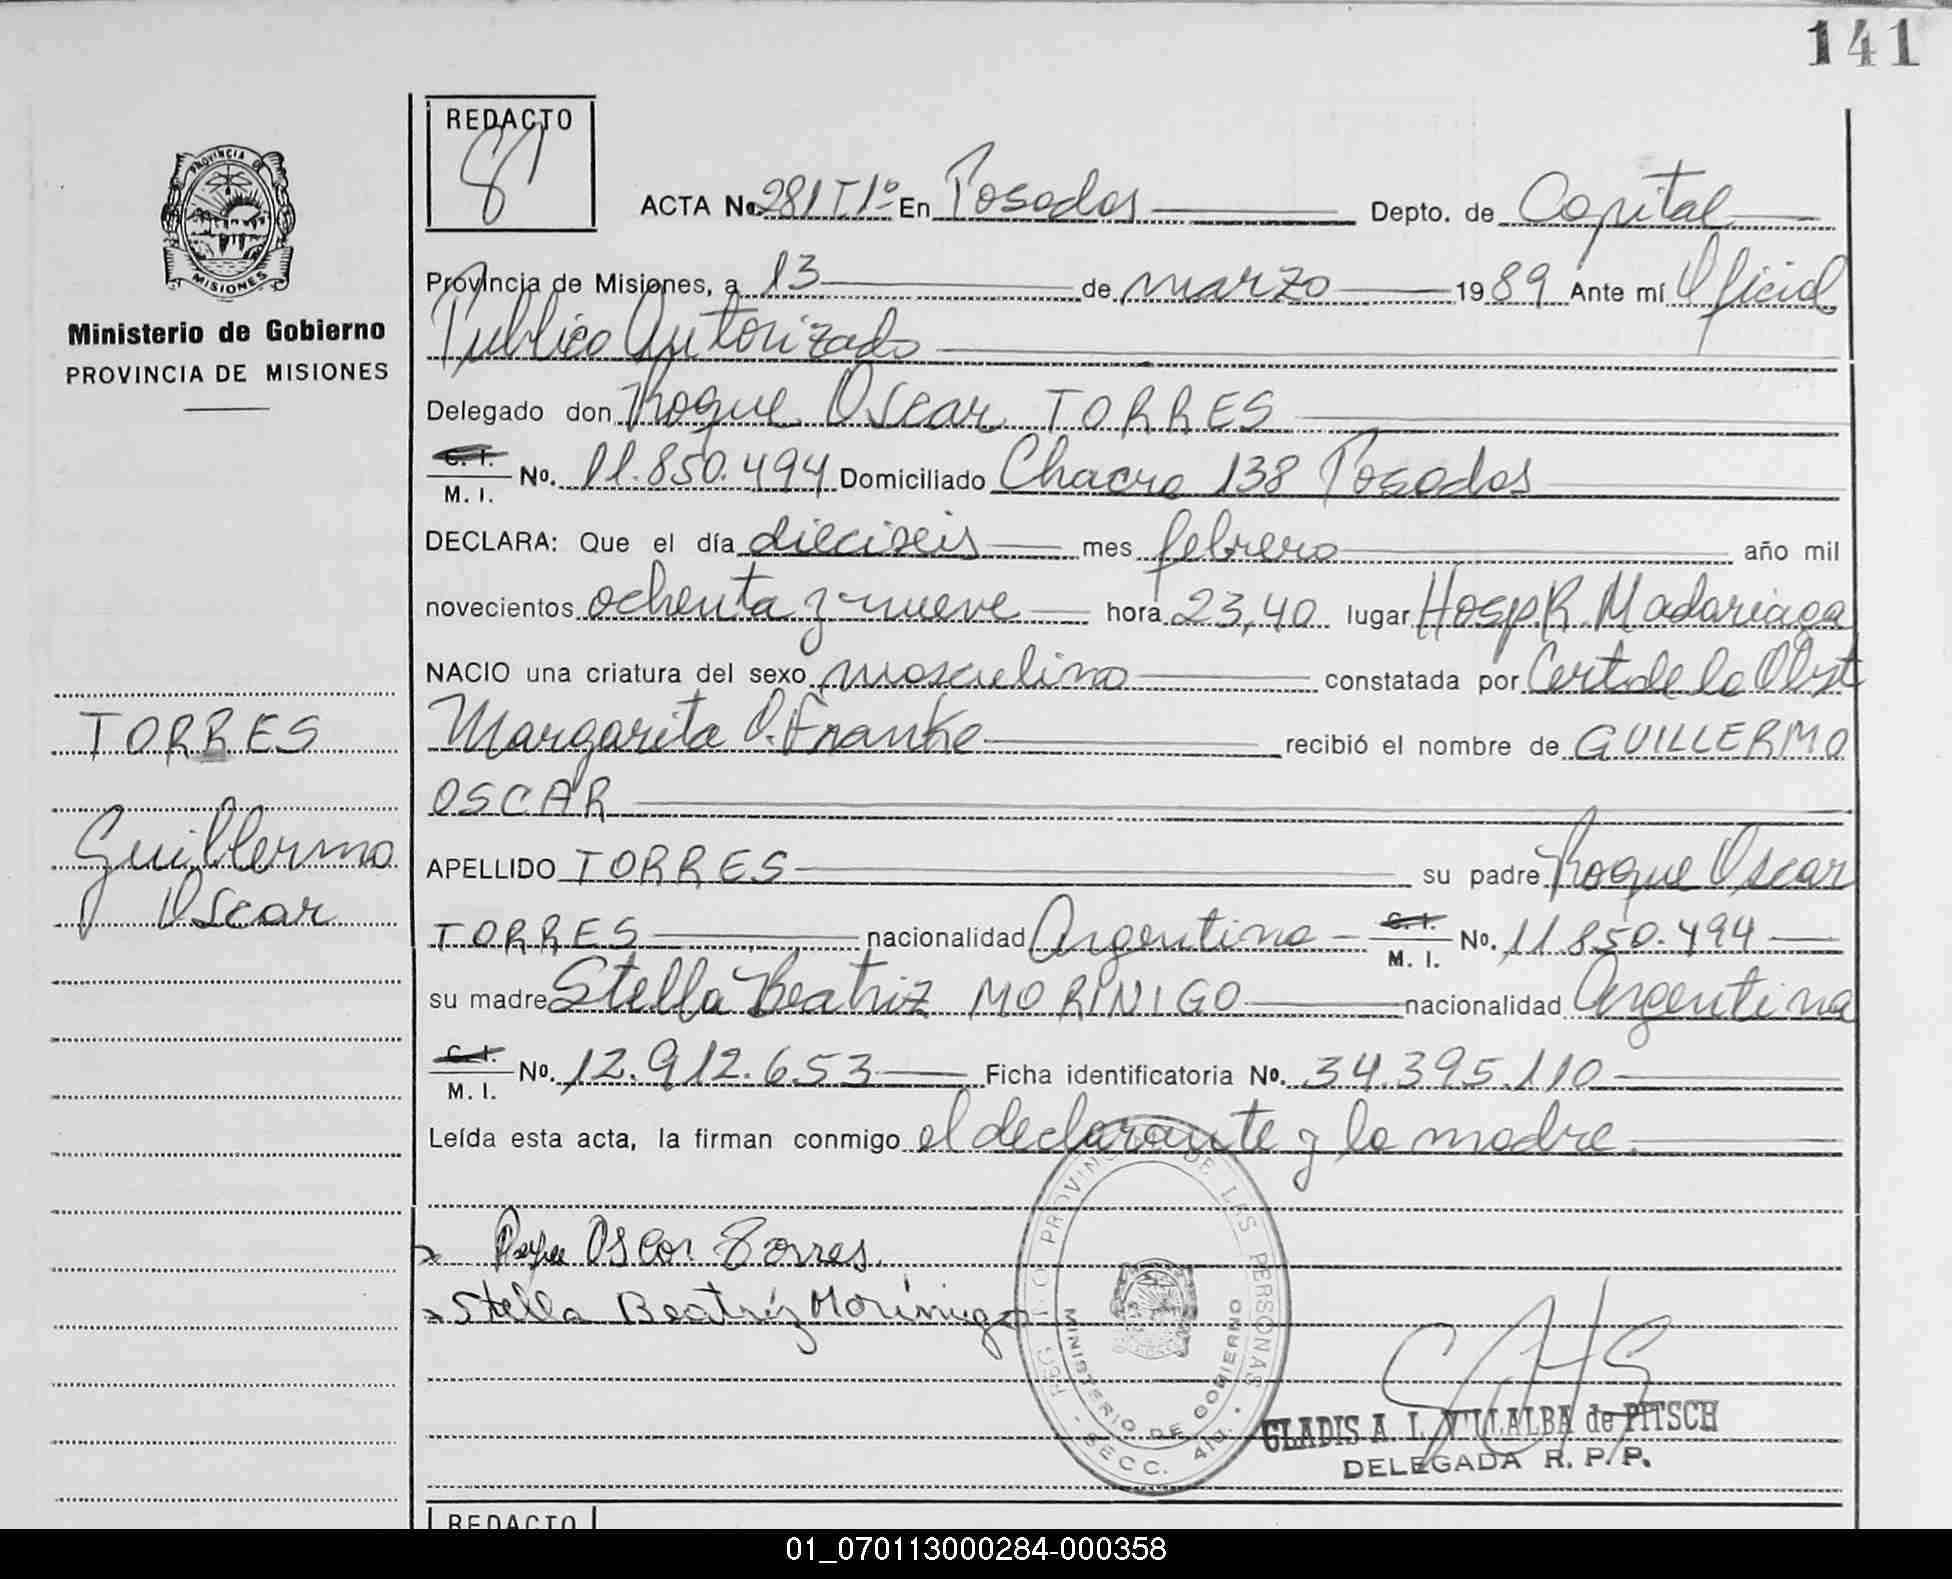 141
REDACTO
PROVINCIA DE
MISIONES
ACTA No. 281 T 1º En Posadas Depto. de Capital
Provincia de Misiones, a 13 de marzo 1989 Ante mí Oficial
Publico Autorizado
Ministerio de Gobierno
PROVINCIA DE MISIONES
Delegado don Roque Oscar TORRES
C. I.
M. I. No. 11.850.494 Domiciliado Chacra 138 Posadas
DECLARA: Que el día dieciseis mes febrero año mil
novecientos ochenta y nueve hora 23,40 lugar Hosp. R. Madariaga
NACIO una criatura del sexo masculino constatada por Cert. de la Obst
Margarita O. Franke recibió el nombre de GUILLERMO
OSCAR
TORRES
Guillermo
Oscar
APELLIDO TORRES su padre Roque Oscar
TORRES nacionalidad Argentina C. I. M. I. No. 11.850.494
su madre Stella Beatriz MORINIGO nacionalidad Argentina
C. I.
M. I. No. 12.912.653 Ficha identificatoria No. 34.395.110
Leída esta acta, la firman conmigo el declarante y la madre.
Roque Oscar Torres.
Stella Beatriz Morinigo
REG PROVINCIAL DE LAS PERSONAS
MINISTERIO DE GOBIERNO
SECC. 4ta.
GLADIS A. I. VILLALBA de PITSCH
DELEGADA R. P. P.
REDACTO
01_070113000284-000358